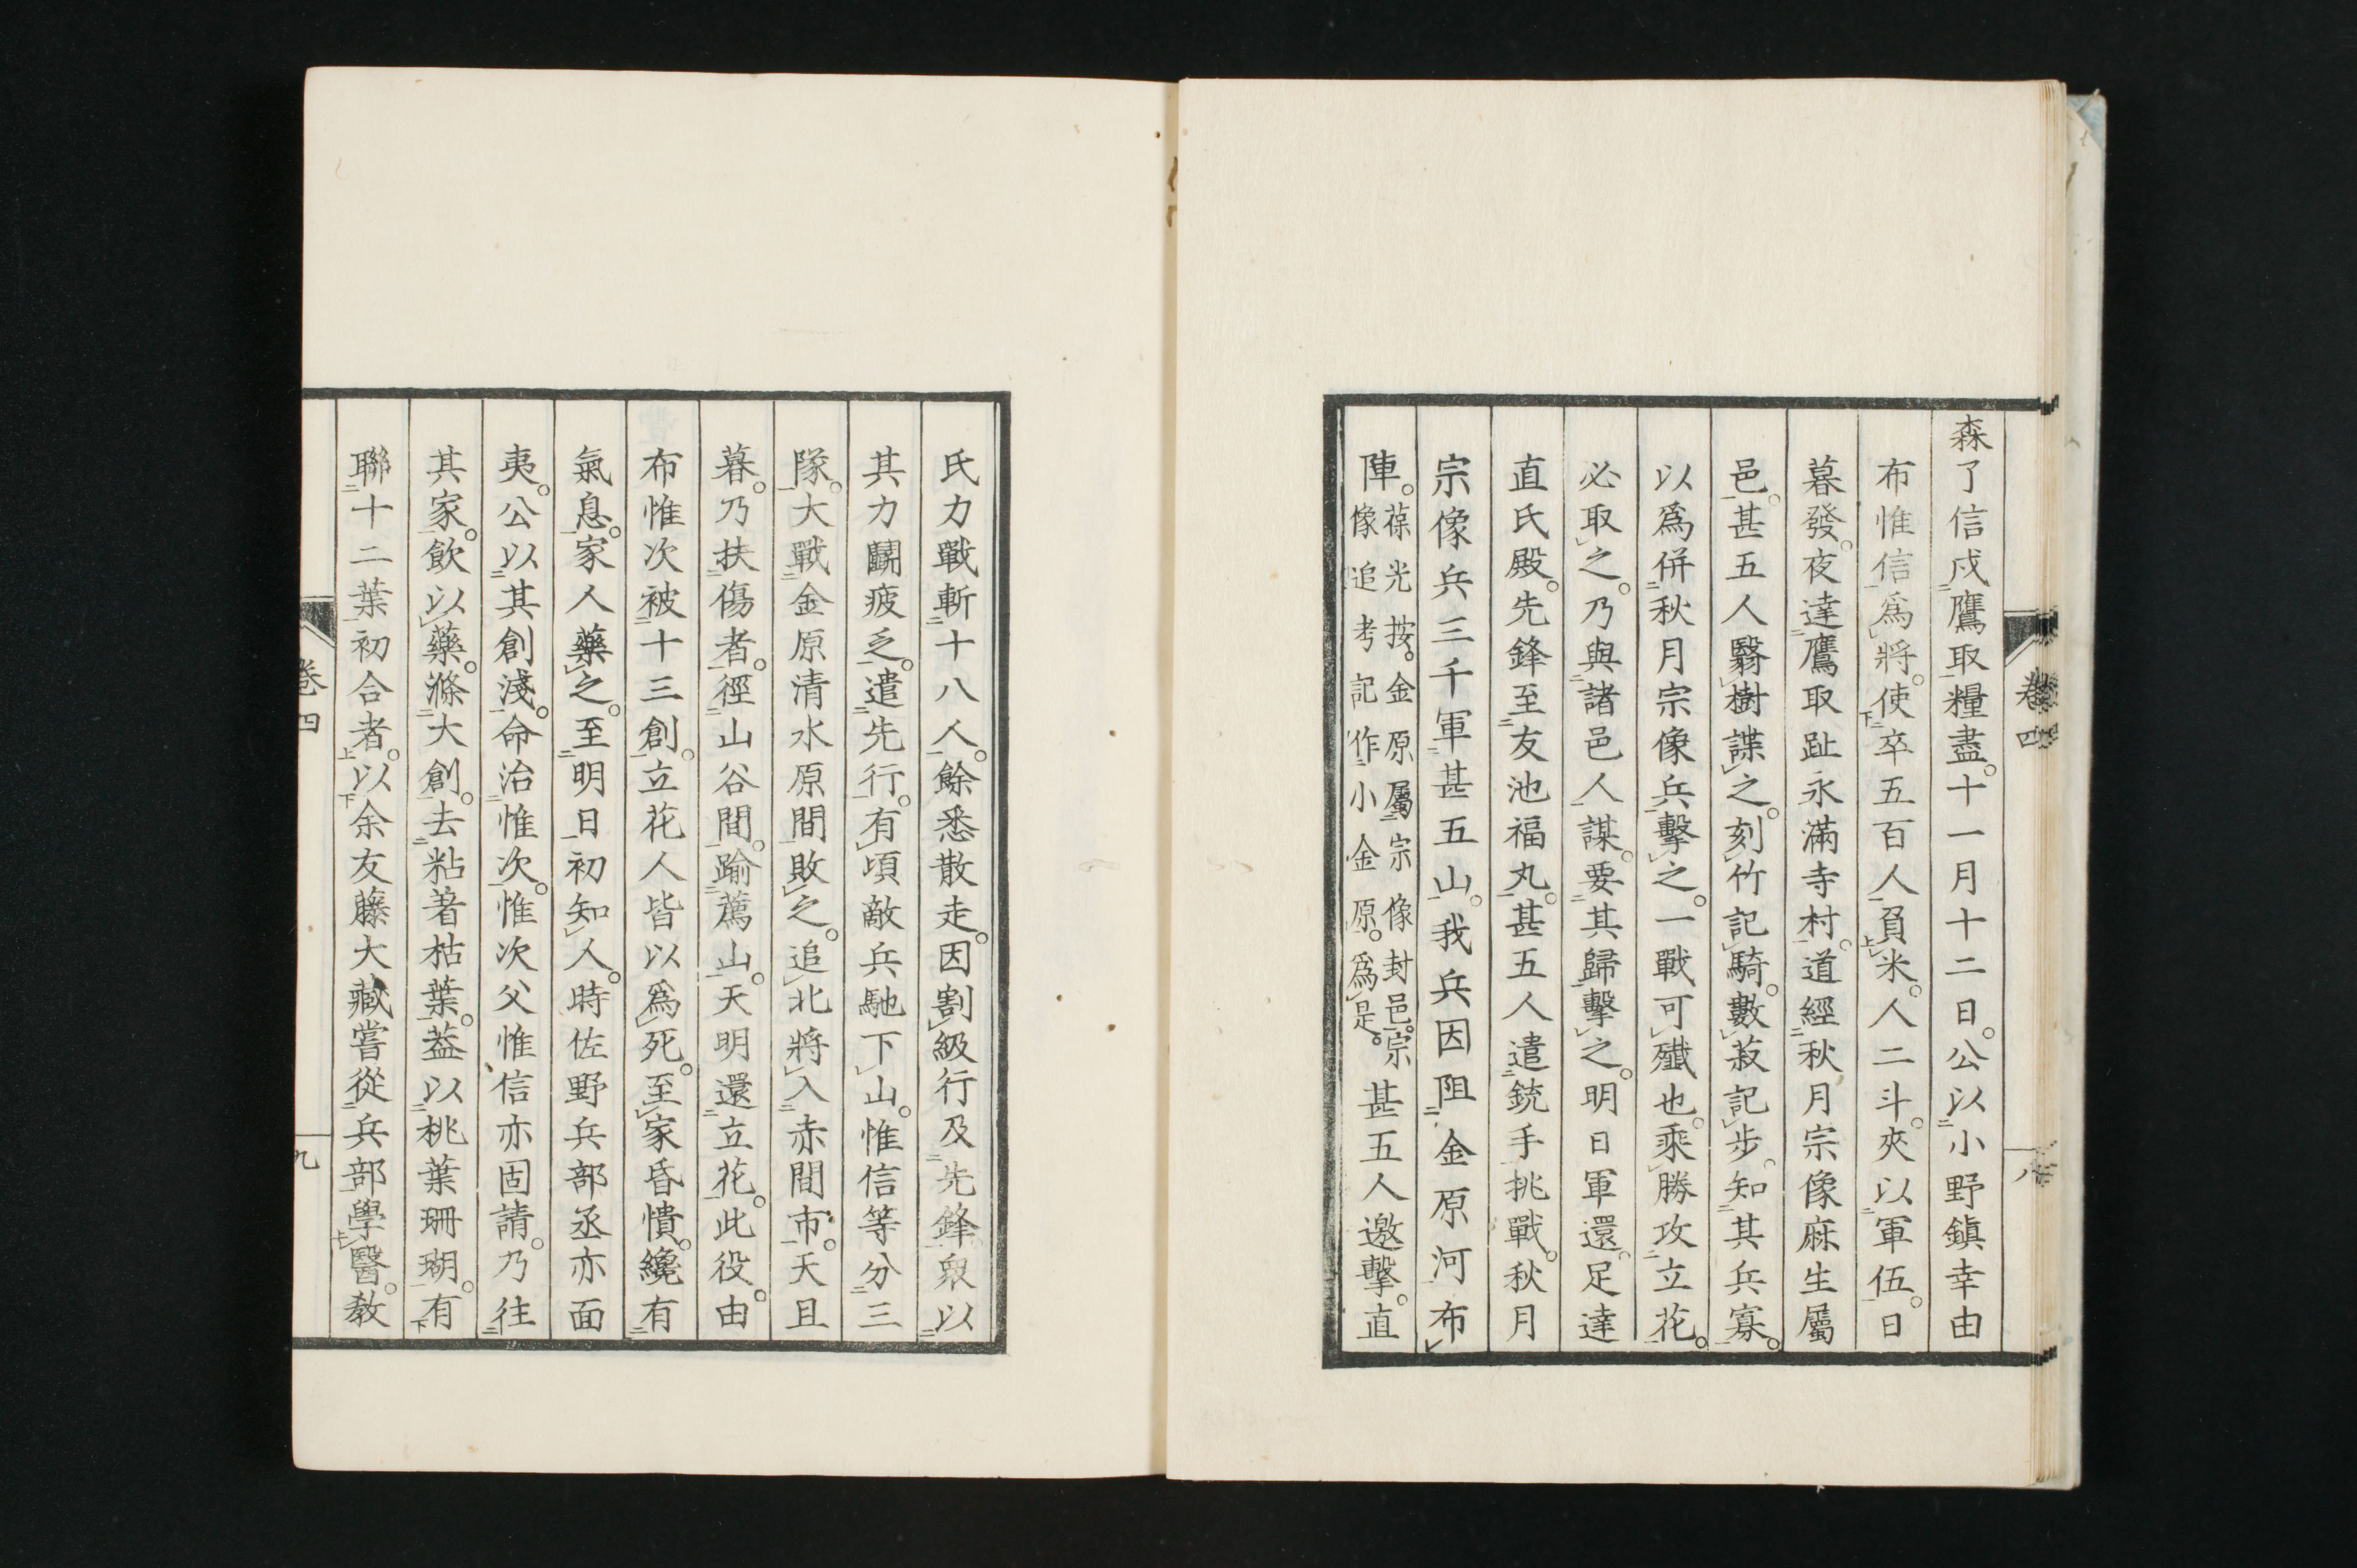 卷四
八
森了信戍鷹取糧盡。十一月十二日。公以小野鎭幸由
布惟信爲將。使卒五百人負米。人二斗。夾以軍伍。日
暮發。夜達鷹取趾永滿寺村。道經秋月宗像麻生屬
邑。甚五人翳樹諜之。刻竹記騎。數菽記步。知其兵寡。
以爲併秋月宗像兵擊之。一戰可殱也。乘勝攻立花。
必取之。乃與諸邑人謀。要其歸擊之。明日軍還。足達
直氏殿。先鋒至友池福丸。甚五人遣銃手挑戰。秋月
宗像兵三千軍甚五山。我兵因阻金原河布
陣。葆光按。金原屬宗像封邑。宗
像追考記作小金原。爲是。甚五人邀擊。直
氏力戰斬十八人。餘悉散走。因割級行及先鋒。衆以
其力鬭疲乏。遣先行。有頃敵兵馳下山。惟信等分三
隊。大戰金原清水原間敗之。追北將入赤間市。天且
暮。乃扶傷者。徑山谷間。踰薦山。天明還立花。此役。由
布惟次被十三創。立花人皆以爲死。至家昏憒。纔有
氣息。家人藥之。至明日初知人。時佐野兵部丞亦面
夷。公以其創淺。命治惟次。惟次父惟信亦固請。乃往
其家。飮以藥。滌大創。去粘著枯葉。葢以桃葉珊瑚。有
聯十二葉初合者。以余友藤大藏嘗從兵部學醫。敎
卷四
九